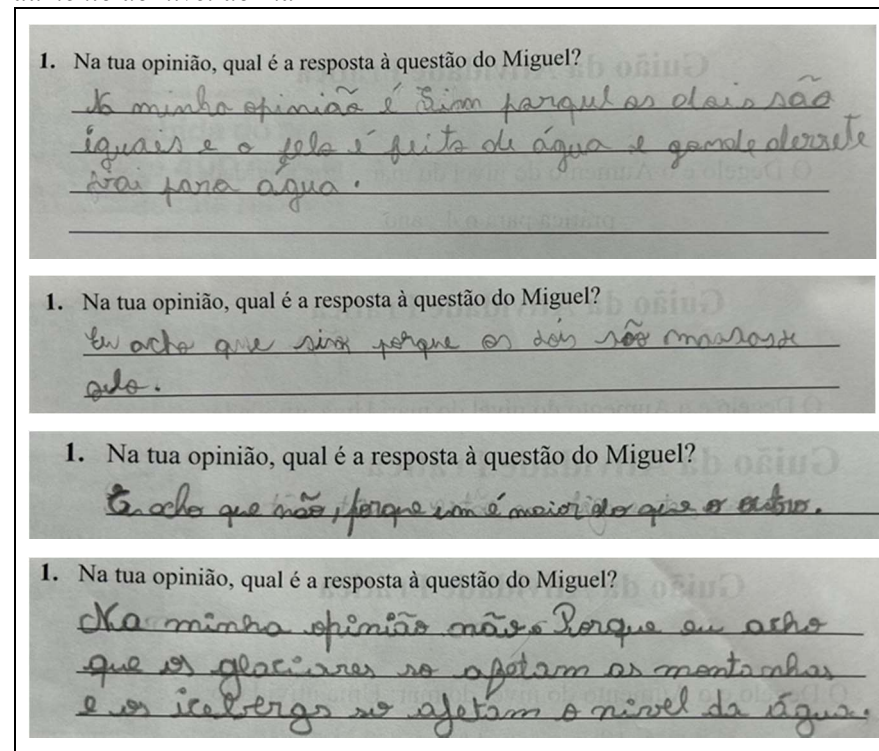 1. Na tua opinião, qual é a resposta à questão do Miguel?
Na minha opinião é Sim parque os dois são
iguais e o gelo é feito de água e quando derrete
vai para água.
1. Na tua opinião, qual é a resposta à questão do Miguel?
Eu acho que sim porque os dois são massas de
gelo.
1. Na tua opinião, qual é a resposta à questão do Miguel?
Eu acho que não, porque um é maior do que o outro.
1. Na tua opinião, qual é a resposta à questão do Miguel?
Na minha opinião não. Porque eu acho
que os glaciares so afetam as montanhas
e os icebergs so afetam o nivel da água.